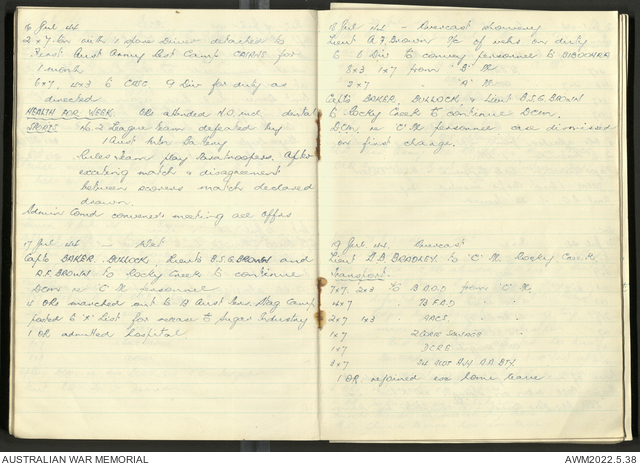 16 Jul 44
2 x 7 ton with 1 spare Driver detached to
First Aust Army Rest Camp CAIRNS for
1 month
6x7, 4x3 to CASC, 9 Div for duty as
directed
HEALTH FOR WEEK. ORs attended M.O. incl dental
SPORTS. No 2 League team defeated by
1 Aust
Rules team play Paratroopers. After
exciting match & disagreement
between scorers match declared
drawn.
Admin Comd convenes meeting all Offrs
17 Jul 44 - Wet
Capts BAKER, BULLOCK, Lieuts B.S.G. BROWN and
A.F. BROWN to Rocky Creek to continue
DCM re "C" Pl personnel
ORs marched out to Aust Gen Stag Camp
posted to "X" List for release to Sugar Industry
1 OR admitted hospital
18 Jul 44 - Overcast showery
Lieut A F Brown i/c of vehs on duty
to 6 Div to convey personnel to
8x3 1x7 from "B" Pl
3x7 "A" Pl
Capts BAKER, BULLOCK, & Lieut B.S.G. BROWN
to Rocky Creek to continue DCM.
DCM re "C" Pl personnel case dismissed
on first charge.
19 Jul 44. Overcast
Lieut A.B. BRADLEY to "C" Pl Rocky Creek
Transport.
7x7 2x3 to B.O.D from "C" Pl.
4x7 F.A.D " "
2x7 1x3 AACS. "
1x7 2 Salvage "
1x7 3CRE "
3x7 Hvy A.A. BTY. "
1 OR rejoined ex home leave
AUSTRALIAN WAR MEMORIAL
AWM2022.5.38